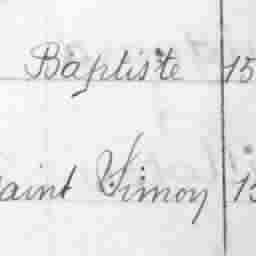 Baptiste 15
aint Simon 15